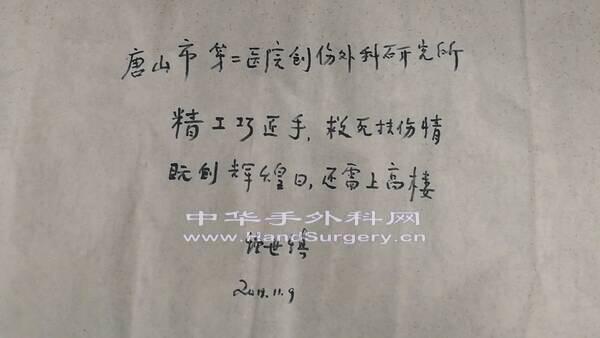 唐山市第二医院创伤外科研究所
精工巧匠手，救死扶伤情
既创辉煌日，还需上高楼
中华手外科网
www.HandSurgery.cn
世
11.9